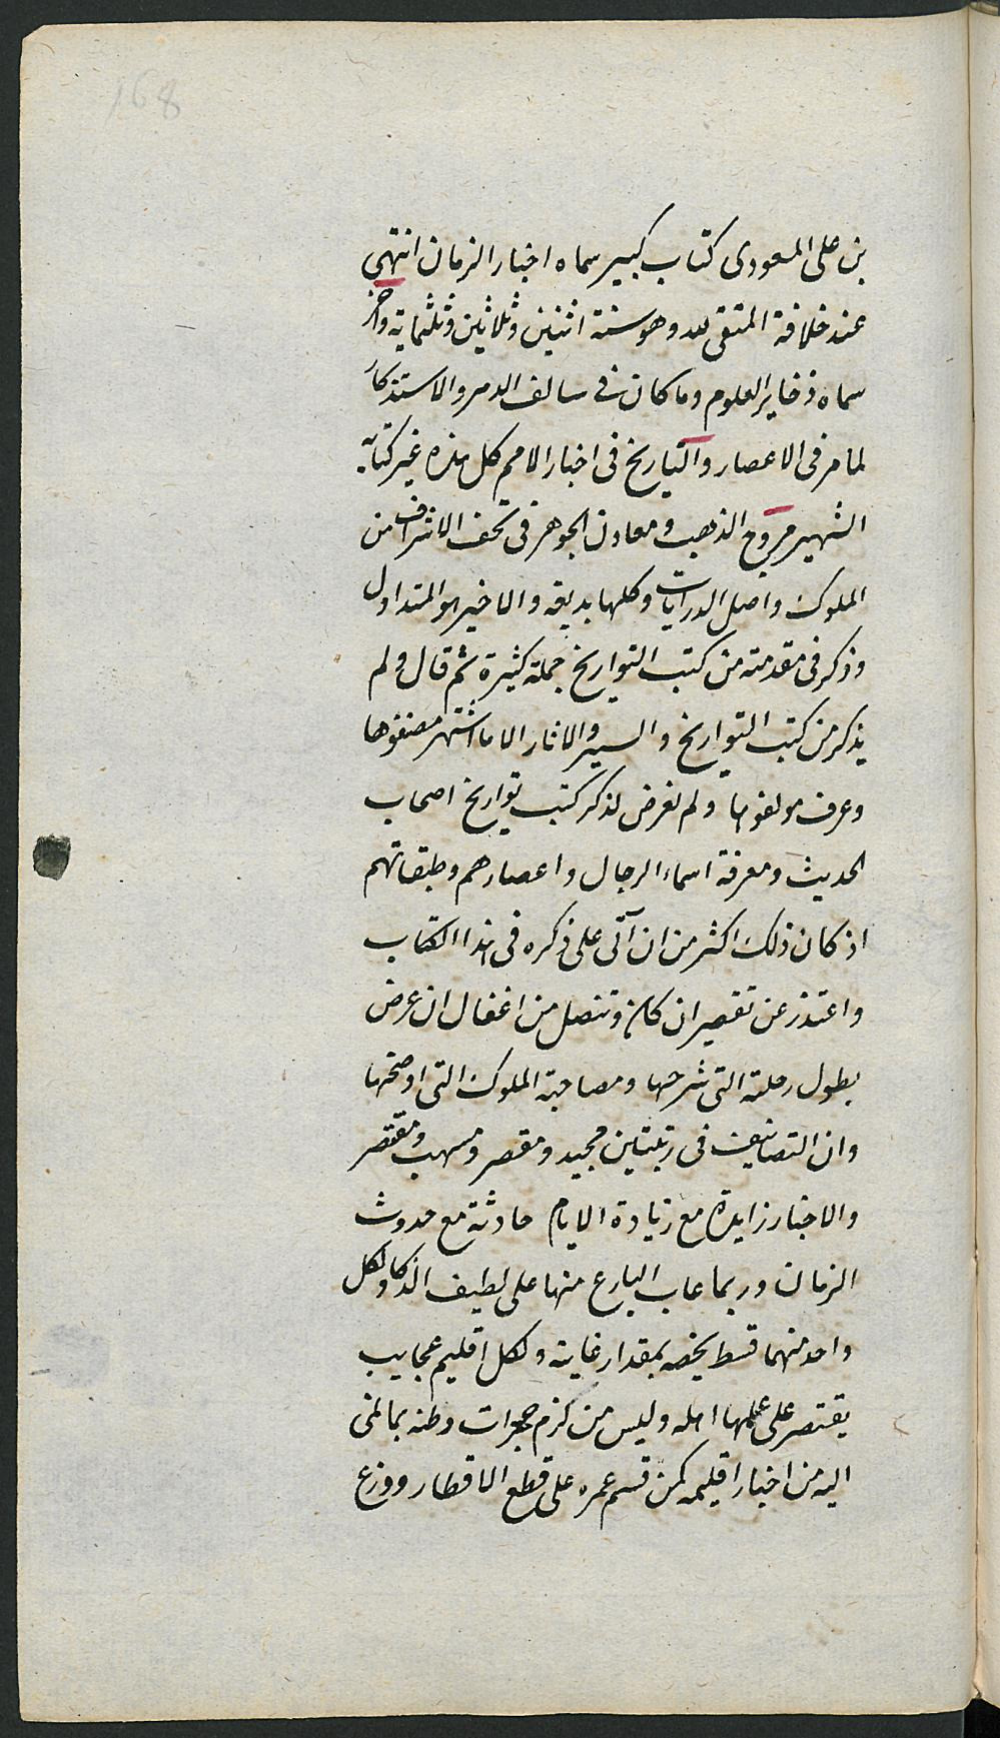 168
بن على المسعودى كتاب كبير سماه اخبار الزمان انتهى
عند خلافة المتقى لله وهو سنة اثنين وثلاثين وثلثماية واخر
سماه ذخاير العلوم وما كان فى سالف الدهر والاستذكار
لما مر فى الاعصار والتياريخ فى اخبار الامم كل هذه غير كتابه
الشهير مروج الذهب ومعادن الجوهر فى تحف الاشراف من
الملوك واصل الدرايات وكلها بديعه والاخير هو المتداول
وذكر فى مقدمته من كتب التواريخ جملة كثيرة ثم قال ولم
يذكر من كتب التواريخ والسير والاثار الا ما اشتهر مصنفوها
وعرف مولفوها ولم نعرض لذكر كتب تواريخ اصحاب
الحديث ومعرفة اسماء الرجال واعصارهم وطبقاتهم
اذ كان ذلك اكثر من ان آتى على ذكره فى هذا الكتاب
واعتذر عن تقصير ان كان وتنصل من اغفال ان عرض
بطول رحلته التى شرحها ومصاحبة الملوك التى اوضحها
وان التصانيف فى رتبتين مجيد ومقصر ومسهب ومقتصر
والاخبار زايدة مع زيادة الايام حادثة مع حدوث
الزمان وربما عاب البارع منها على لطيف الذكا ولكل
واحد منهما قسط يخصه بمقدار غايته ولكل اقليم عجايب
يقتصر على علمها اهله وليس من لزم حجرات وطنه بما لمى
اليه من اخبار اقليمه كمن قسم عمره على قطع الاقطار ووزع